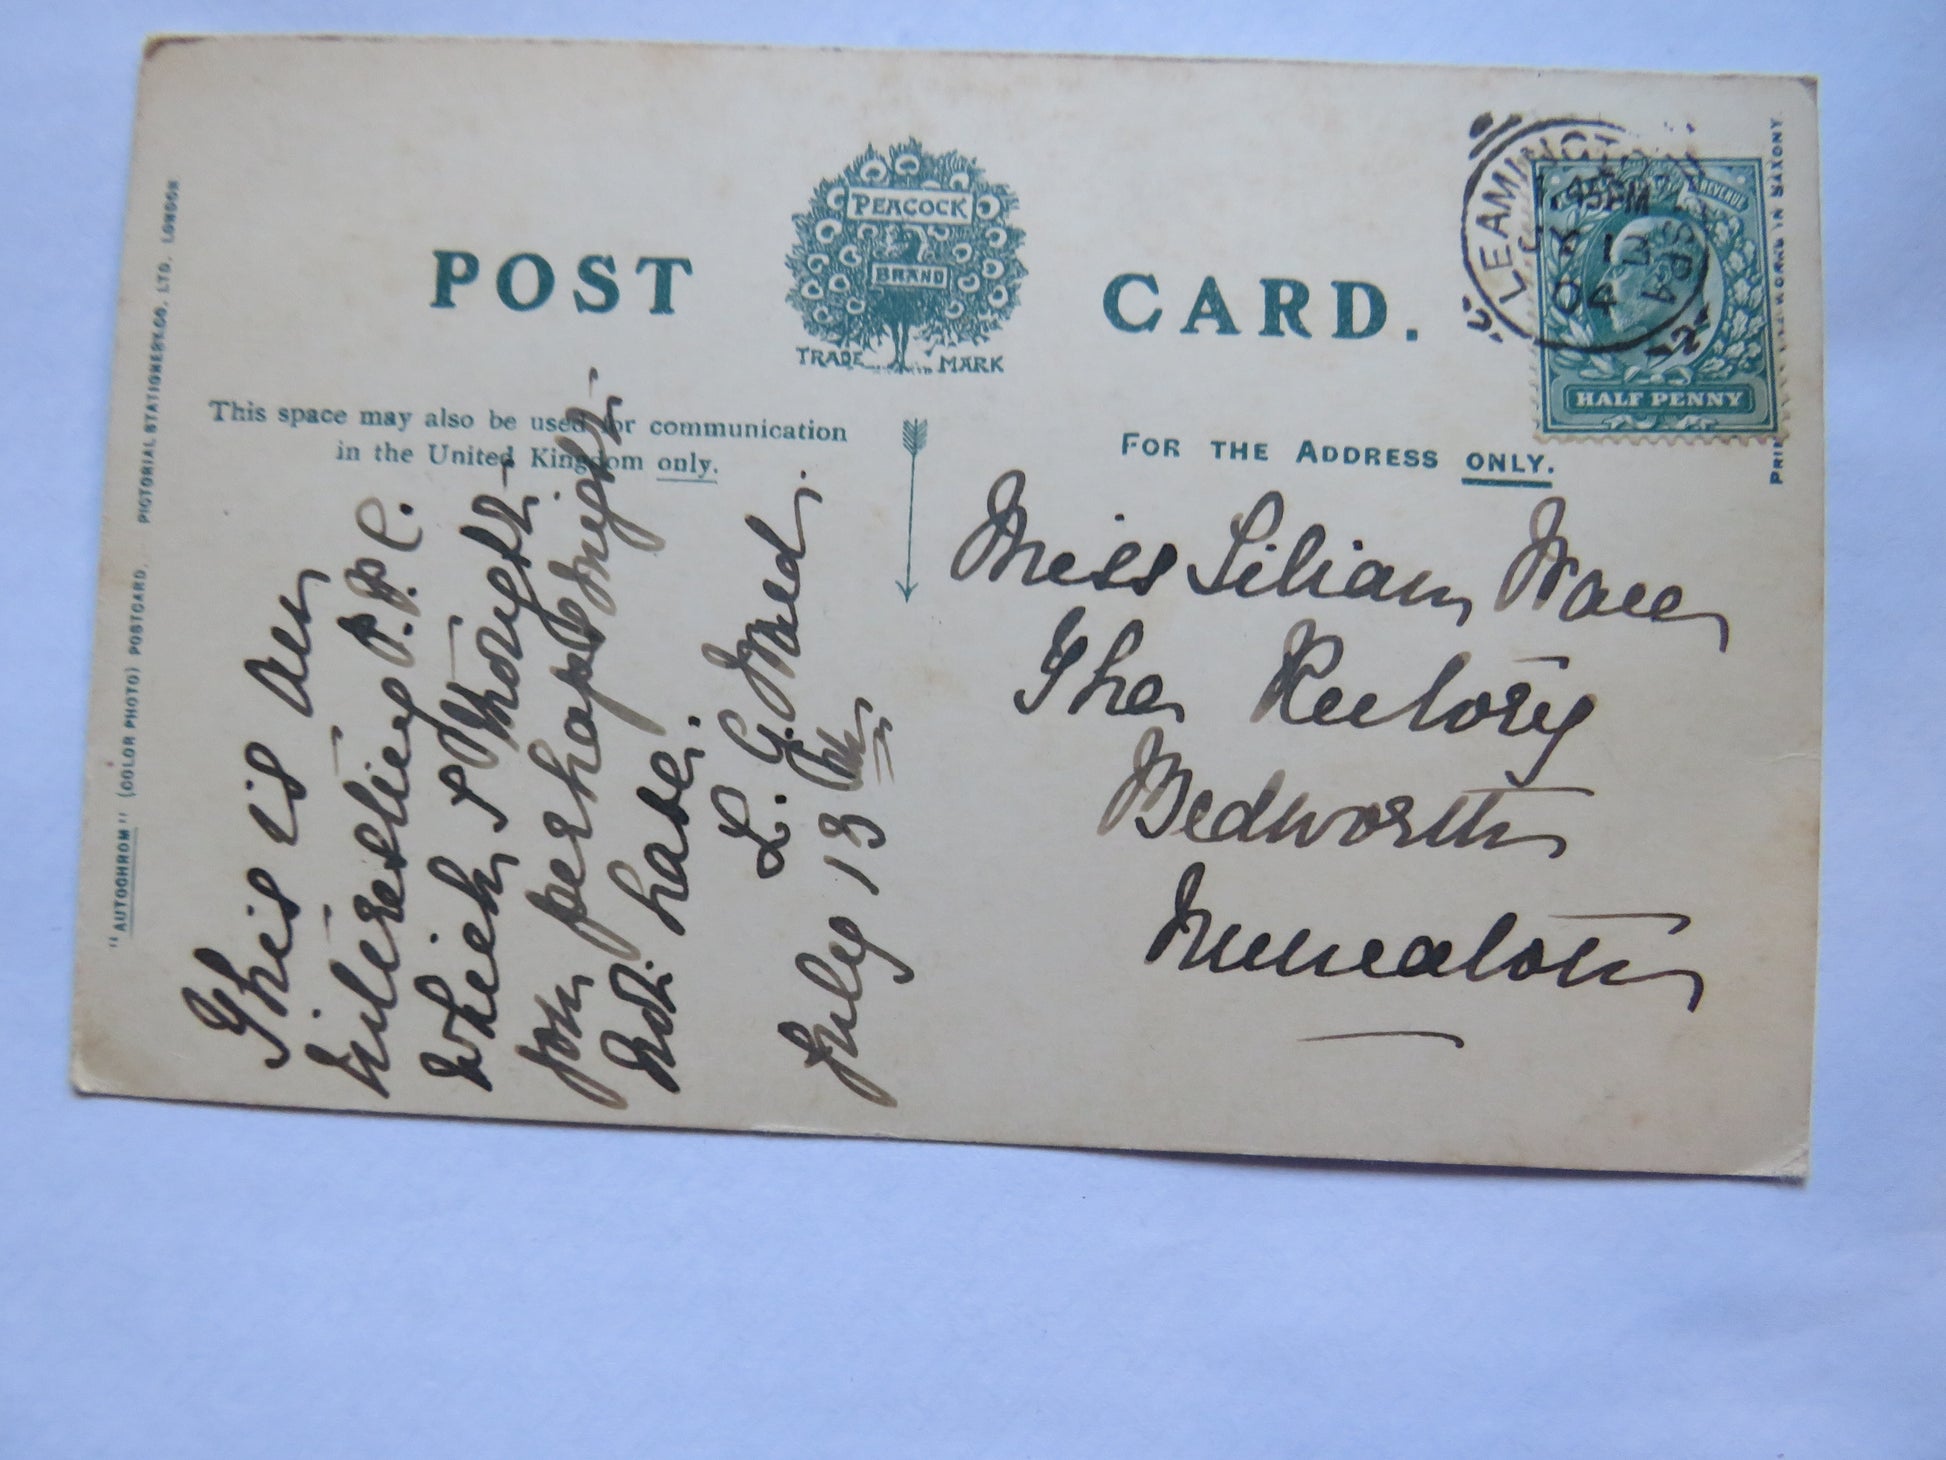 POST CARD.
PEACOCK
BRAND
TRADE MARK
This space may also be used for communication
in the United Kingdom only.
FOR THE ADDRESS ONLY.
"AUTOCHROM" (COLOR PHOTO) POSTCARD. PICTORIAL STATIONERY CO. LTD. LONDON
LEAMINGTON SPA
1.45 PM
JY 13
04
REVENUE
HALF PENNY
This is an
interesting P.P.C.
which I thought
you perhaps might
not have.
L. G.
July 13th
Miss Lilian
The Rectory
Bedworth
Nuneaton